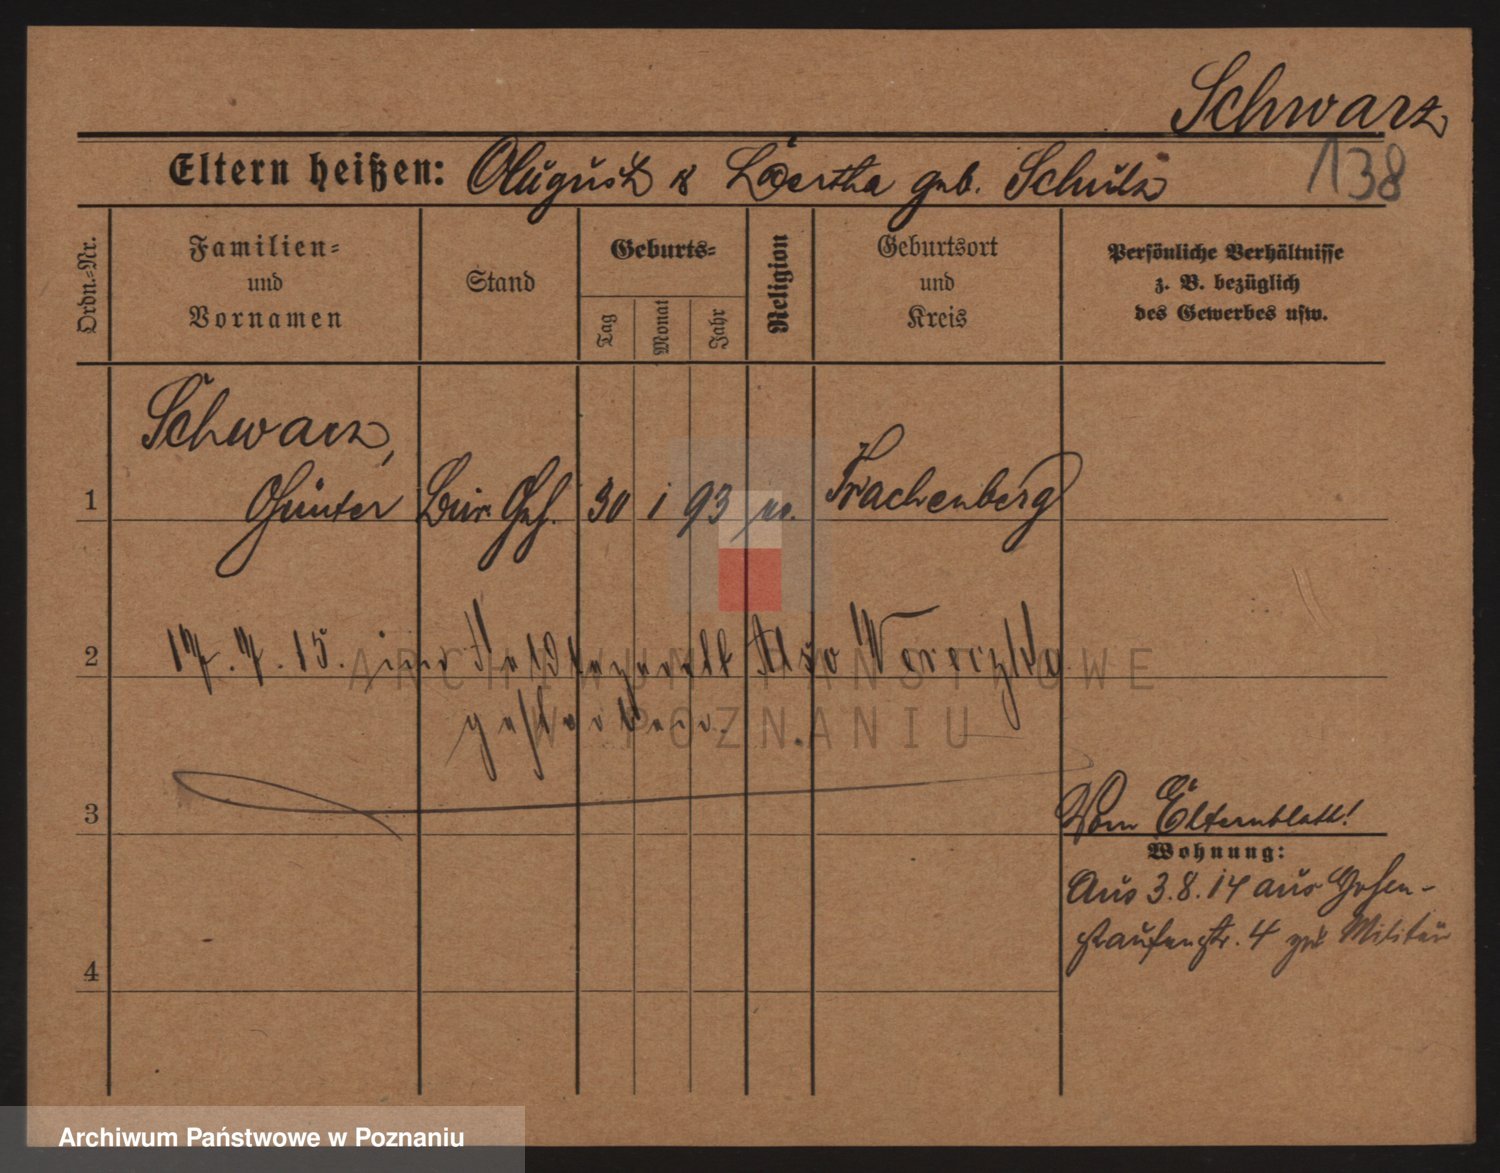 Schwarz
138
Eltern heißen: August & Bertha geb. Schulz
Ordn.-Nr.
Familien-
und
Vornamen
Stand
Geburts-
Tag
Monat
Jahr
Religion
Geburtsort
und
Kreis
Persönliche Verhältnisse
z. B. bezüglich
des Gewerbes usw.
Schwarz,
1 Günter Bür. Geh. 30 1 93 Trachenberg
2 17. 7. 15. im Feldlazarett
gestorben.
3
Vom Elternblatt!
Wohnung:
Aus 3. 8. 14 aus Hohen-
staufenstr. 4 zu Militär
4
ARCHIWUM PAŃSTWOWE
W POZNANIU
Archiwum Państwowe w Poznaniu